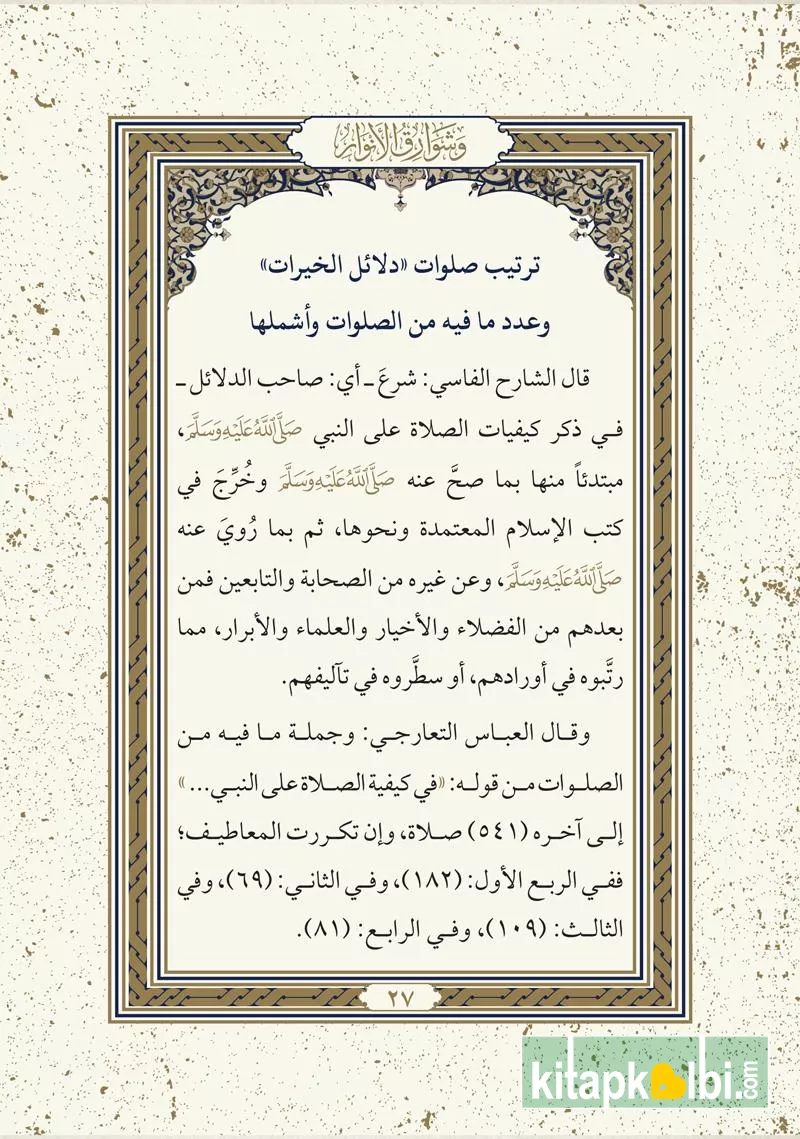 وشوارق الأنوار
ترتيب صلوات «دلائل الخيرات»
وعدد ما فيه من الصلوات وأشملها
قال الشارح الفاسي: شرعَ ـ أي: صاحب الدلائل ـ
فـي ذكر كيفيات الصلاة على النبي صَلَّى اللَّهُ عَلَيْهِ وَسَلَّمَ،
مبتدئاً منها بما صحَّ عنه صَلَّى اللَّهُ عَلَيْهِ وَسَلَّمَ وخُرِّجَ في
كتب الإسلام المعتمدة ونحوها، ثم بما رُويَ عنه
صَلَّى اللَّهُ عَلَيْهِ وَسَلَّمَ، وعن غيره من الصحابة والتابعين فمن
بعدهم من الفضلاء والأخيار والعلماء والأبرار، مما
رتَّبوه في أورادهم، أو سطَّروه في تآليفهم.
وقـال العبـاس التعارجـي: وجملـة مـا فيـه مـن
الصلـوات مـن قولـه: «في كيفية الصـلاة على النبـي... »
إلـى آخـره (٥٤١) صـلاة، وإن تكـررت المعاطيـف؛
ففـي الربـع الأول: (١٨٢)، وفـي الثانـي: (٦٩)، وفي
الثالـث: (١٠٩)، وفـي الرابـع: (٨١).
٢٧
kitapkalbi.com